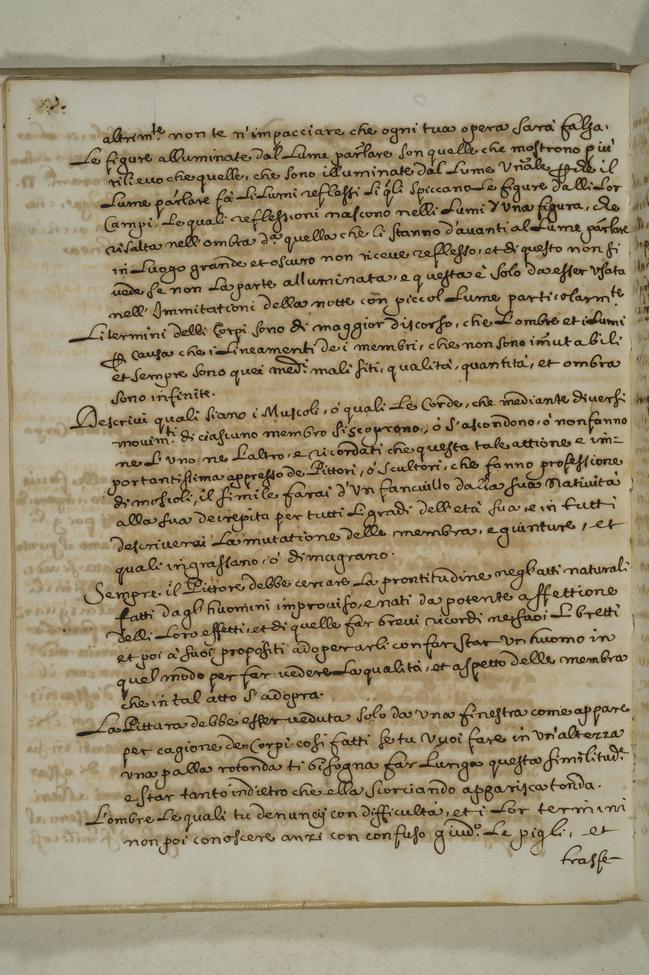 altrim.te non te n'impacciare che ogni tua opera sarà falsa.
Le figure alluminate dal Lume par.lare son quelle che mostrono più
rilievo che quelle, che sono illuminate dal Lume Un.ale, che il
Lume par.lare fà Li Lumi reflessi Li q.li spiccano Le figure dalli Lor
Campi, Le quali reflessioni nascono nelli Lumi d'una figura, che
risalta nell'ombra d.a quella che li stanno davanti al Lume par.lare
in Luogo grande et oscuro non riceve reflesso, et di questo non si
vede se non La parte alluminata, e questa è solo da esser usata
nell'Immitationi della notte con piccol Lume particolarm.te
Li termini delli Corpi sono di maggior discorso, che L'ombre et i Lumi
causa che i Lineamenti de i membri, che non sono imutabili
et sempre sono quei med.mi mali siti, qualità, quantità, et ombra
sono infinite.
Descrivi quali siano i Muscoli, ò quali Le Corde, che mediante diversi
movim.ti di ciascuno membro si scoprono, ò s'ascondono, ò non fanno
ne L'uno ne L'altro, e ricordati che questa tale attione e im=
portantissima appresso de Pittori, ò Scultori, che fanno professione
di muscoli, il simile farai d'un fanciullo dalla sua Natività
alla sua decrepita per tutti Li gradi dell'età sua, e in tutti
descriverai La mutatione delle membra, e giunture, et
quali ingrassano, ò dimagrano.
Sempre il Pittore debbe cercare La prontitudine negl'atti naturali
fatti dagl'huomini improviso, e nati da potente affettione
delli Loro effetti, et di quelle far brevi ricordi ne suoi Libretti
et poi à suoi propositi adoperarli con far star un huomo in
quel modo per far vedere La qualità, et aspetto delle membra
che in tal atto s'adopra.
La Pittura debbe esser veduta solo da una finestra come appare
per cagione de Corpi cosi fatti se tu vuoi fare in un'altezza
una palla rotonda ti bisogna far Lunga questa similitud.e
e star tanto indietro che ella scorciando apparisca tonda.
L'ombre Le quali tu denuncij con difficultà, et i Lor termini
non poi conoscere anzi con confuso giud.o Le pigli, et
trasfe=